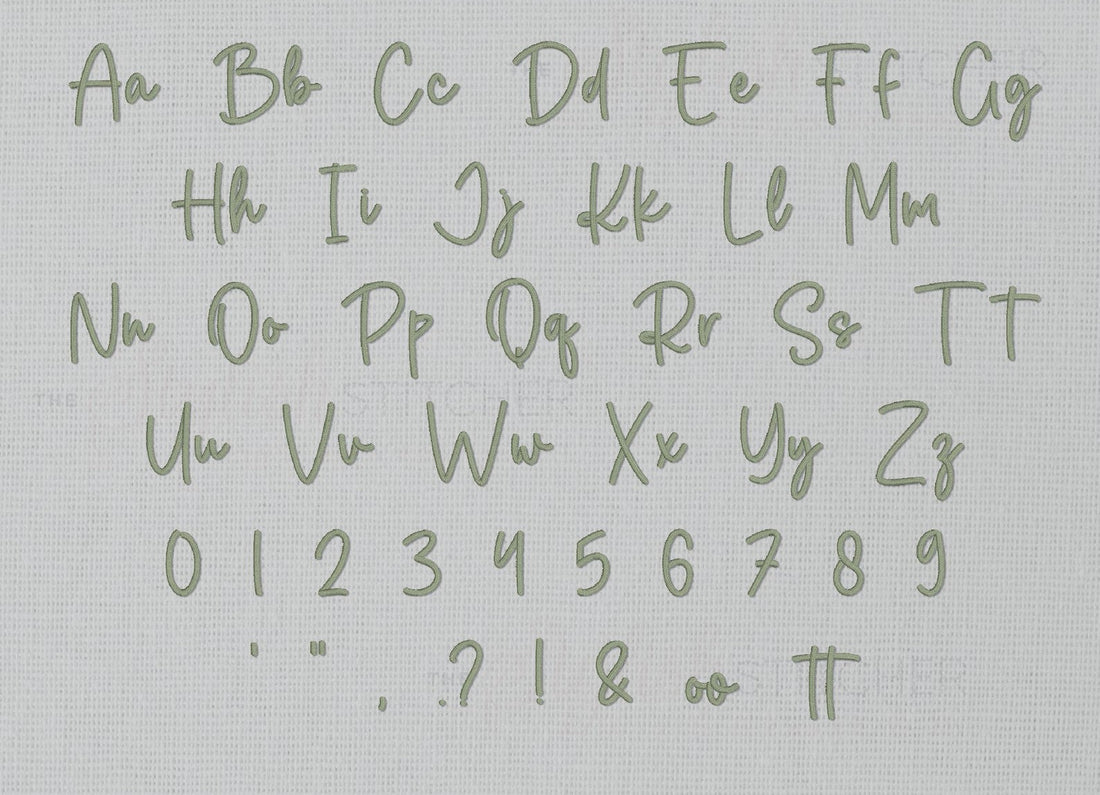 Aa Bb Cc Dd Ee Ff Gg
Hh Ii Jj Kk Ll Mm
Nn Oo Pp Qq Rr Ss Tt
THE STITCHER
Uu Vv Ww Xx Yy Zz
0 1 2 3 4 5 6 7 8 9
' " , . ? ! & oo tt